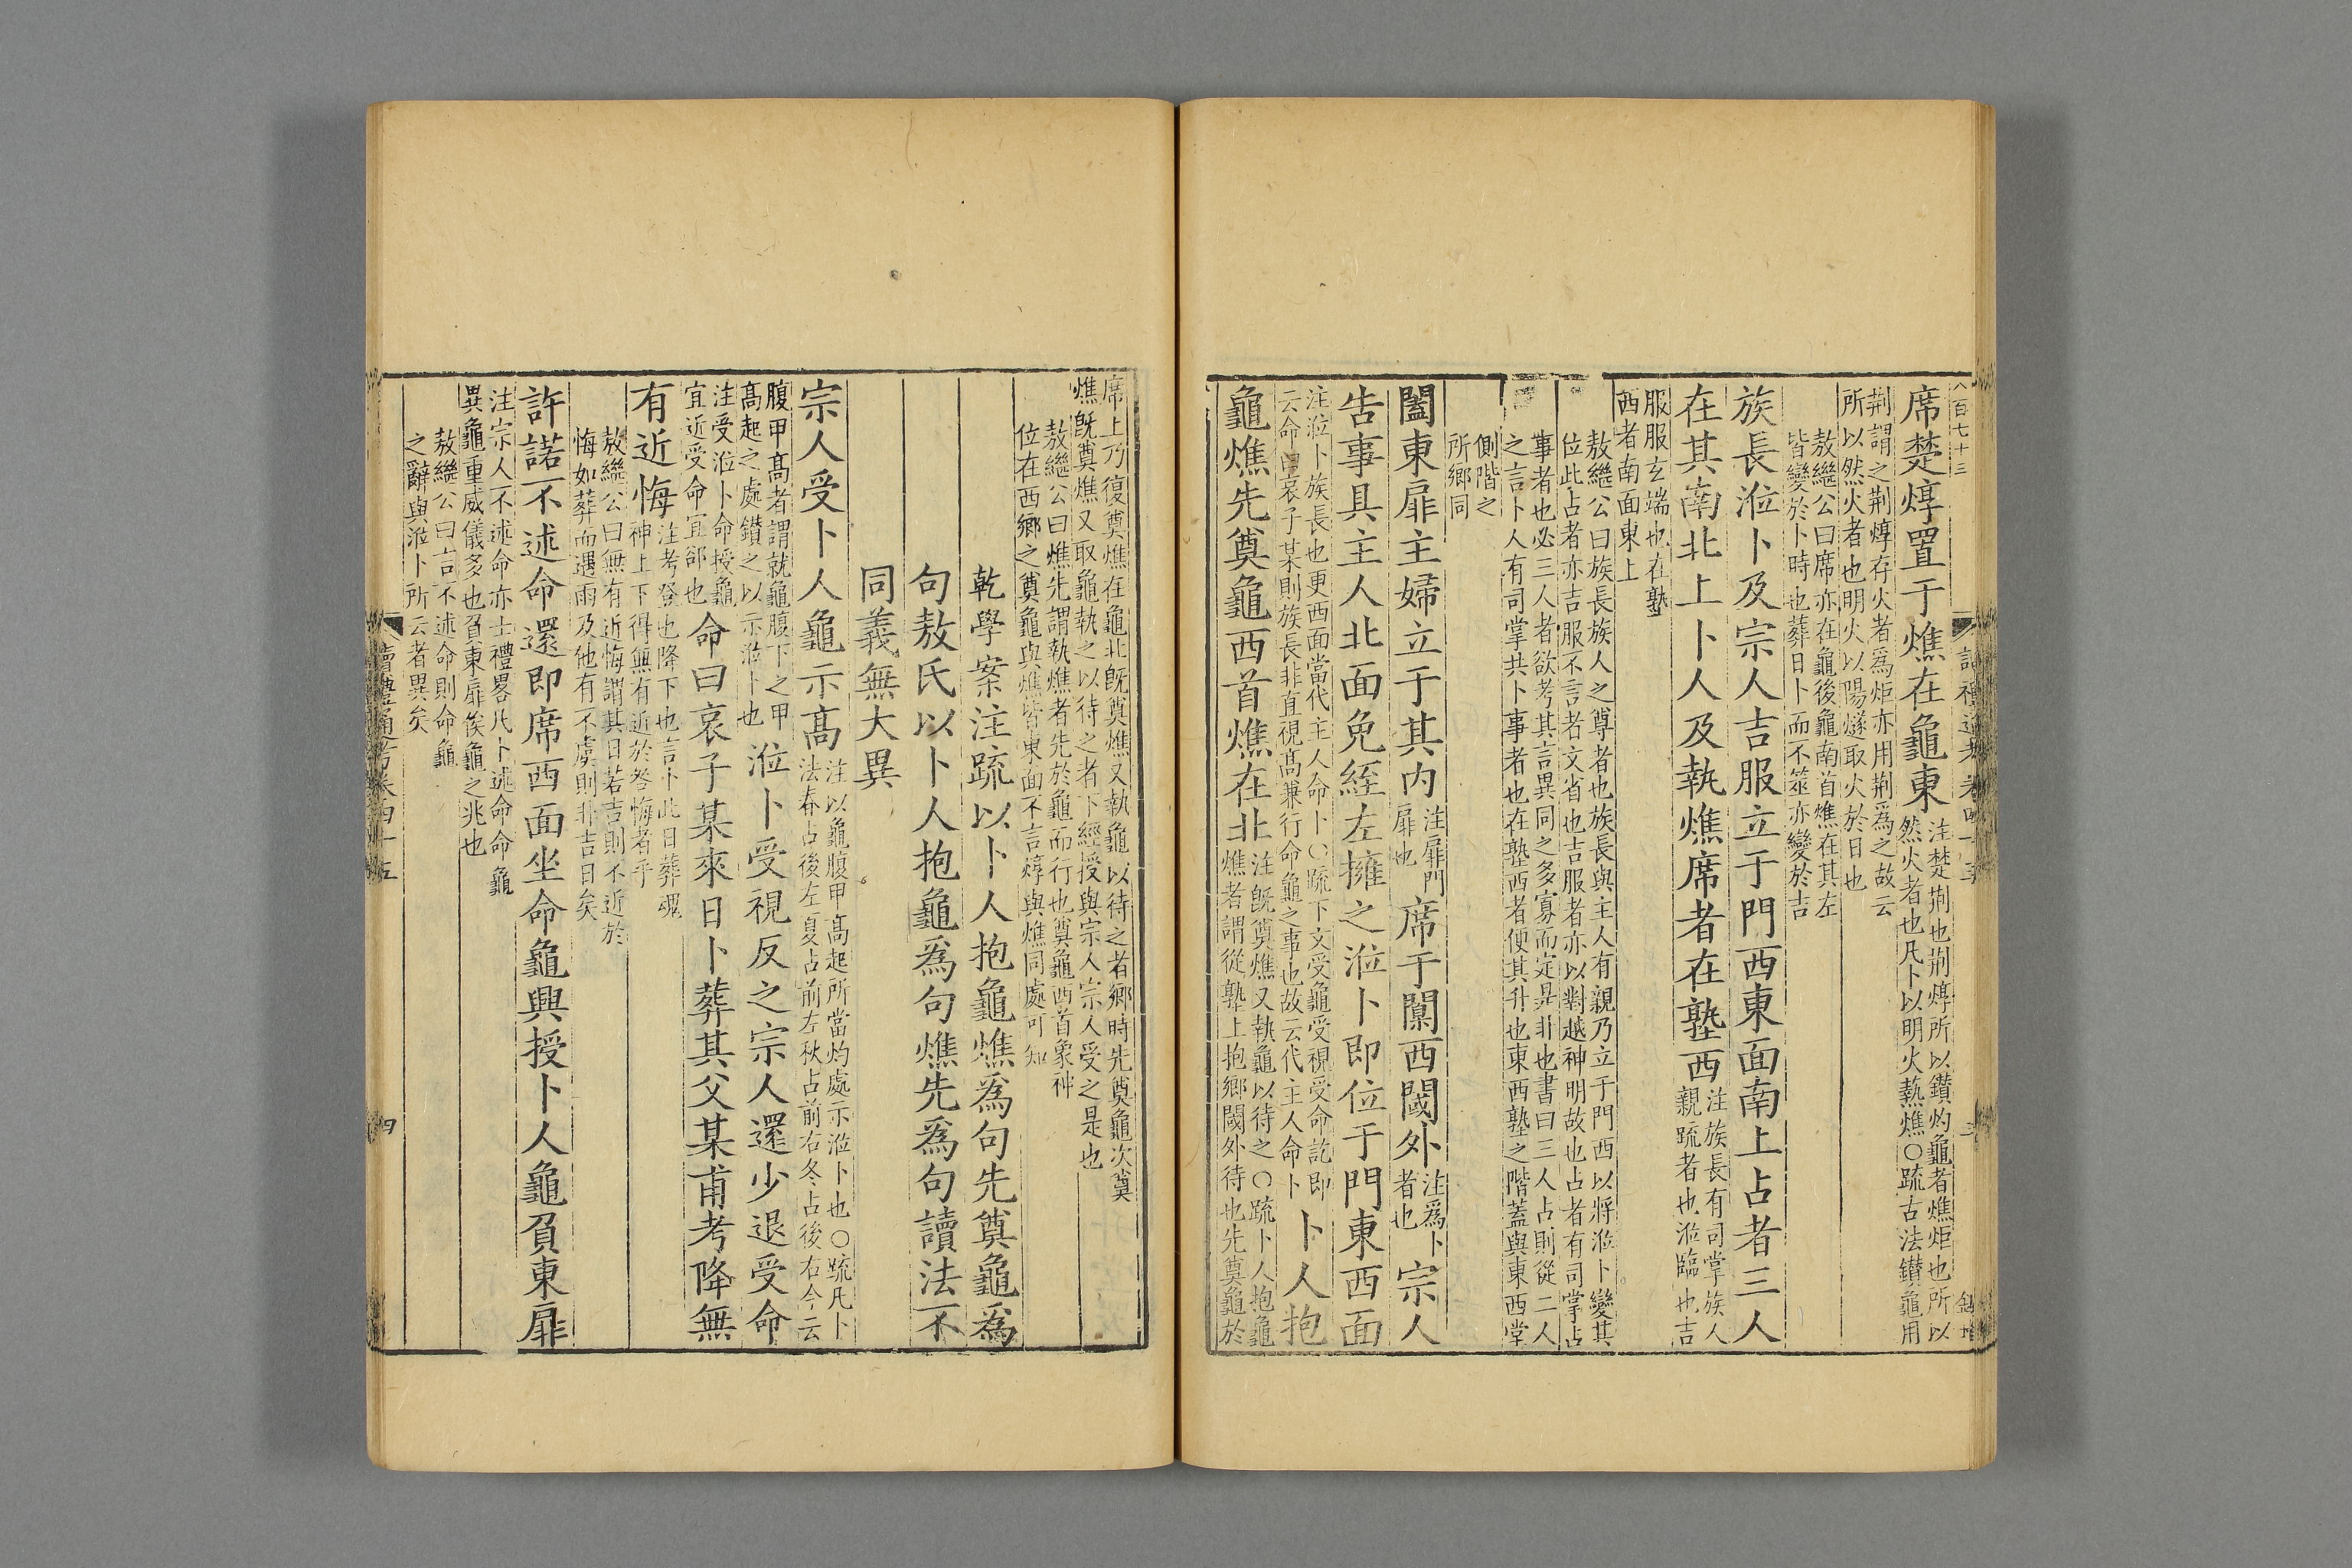 八百七十三
席楚焞置于燋在龜東注楚荆也荆焞所以鑽灼龜者燋炬也所以
然火者也凡卜以明火爇燋○疏古法鑽龜用
荆謂之荆焞存火者爲炬亦用荆爲之故云
所以然火者也明火以陽燧取火於日也
敖繼公曰席亦在龜後龜南首燋在其左
皆變於卜時也葬日卜而不筮亦變於吉
族長涖卜及宗人吉服立于門西東面南上占者三人
在其南北上卜人及執燋席者在塾西注族長有司掌族人
親疏者也涖臨也吉
服服玄端也在塾
西者南面東上
敖繼公曰族長族人之尊者也族長與主人有親乃立于門西以將涖卜變其
位此占者亦吉服不言者文省也吉服者亦以對越神明故也占者有司掌占
事者也必三人者欲考其言異同之多寡而定是非也書曰三人占則從二人
之言卜人有司掌共卜事者也在塾西者便其升也東西塾之階蓋與東西堂
側階之
所鄉同
闔東扉主婦立于其内注扉門
扉也席于闑西閾外注爲卜
者也宗人
告事具主人北面免絰左擁之涖卜即位于門東西面
注涖卜族長也更西面當代主人命卜○疏下文受龜受視受命訖即
云命曰哀子某則族長非直視高兼行命龜之事也故云代主人命卜卜人抱
龜燋先奠龜西首燋在北注既奠燋又執龜以待之○疏卜人抱龜
燋者謂從塾上抱鄉閾外待也先奠龜於
席上乃復奠燋在龜北既奠燋又執龜以待之者鄉時先奠龜次奠
燋既奠燋又取龜執之以待之者下經授與宗人宗人受之是也
敖繼公曰燋先謂執燋者先於龜而行也奠龜西首象神
位在西鄉之奠龜與燋皆東面不言焞與燋同處可知
乾學案注疏以卜人抱龜燋爲句先奠龜爲
句敖氏以卜人抱龜爲句燋先爲句讀法不
同義無大異
宗人受卜人龜示高注以龜腹甲高起所當灼處示涖卜也○疏凡卜
法春占後左夏占前左秋占前右冬占後右今云
腹甲高者謂就龜腹下之甲
高起之處鑽之以示涖卜也涖卜受視反之宗人還少退受命
注受涖卜命授龜
宜近受命宜郤也命曰哀子某來日卜葬其父某甫考降無
有近悔注考登也降下也言卜此日葬魂
神上下得無有近於咎悔者乎
敖繼公曰無有近悔謂其日若吉則不近於
悔如葬而遇雨及他有不虞則非吉日矣
許諾不述命還即席西面坐命龜興授卜人龜負東扉
注宗人不述命亦士禮畧凡卜述命命龜
異龜重威儀多也負東扉俟龜之兆也
敖繼公曰言不述命則命龜
之辭與涖卜所云者異矣
讀禮通考卷四十五
四